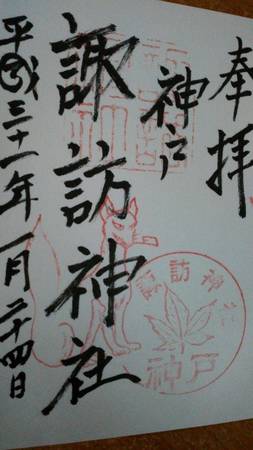 奉拝
神戸
諏訪神社
平成三十一年一月二十四日
諏訪神社
神戸